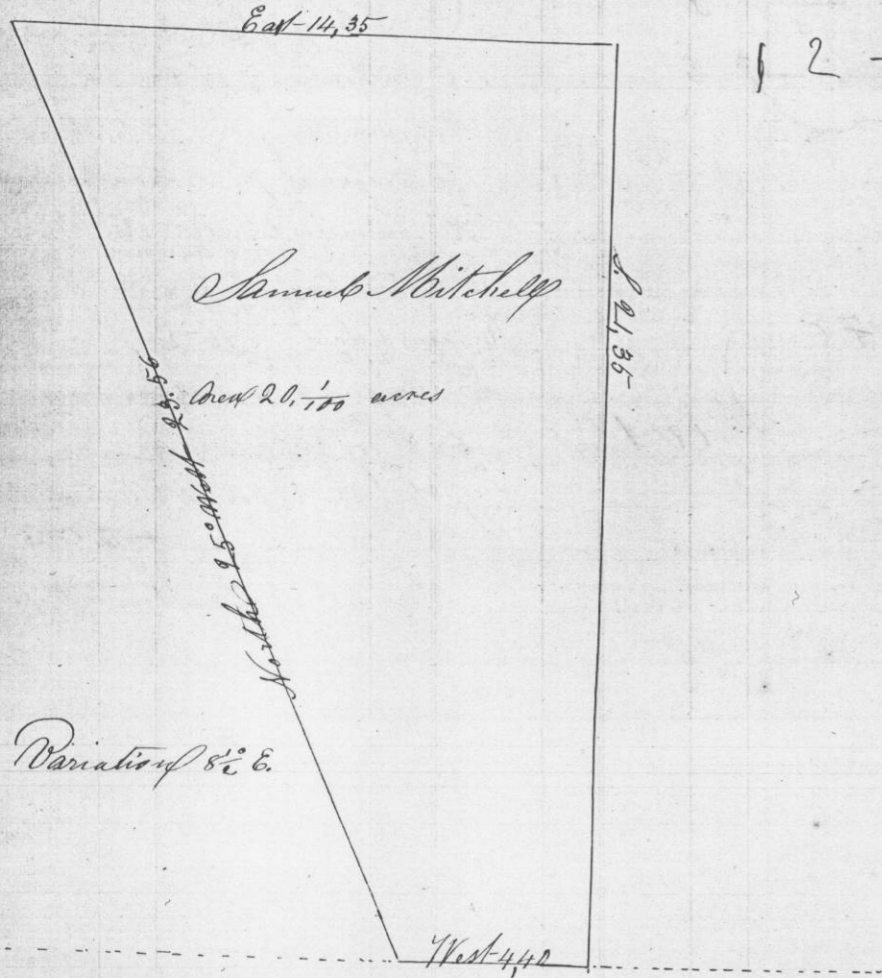 East 14,35
1 2 -
Samuel Mitchell
S. 21,35
Area 20, 1/100 acres
North 25° West 23.56
Variation 8 1/2° E.
West 4,40